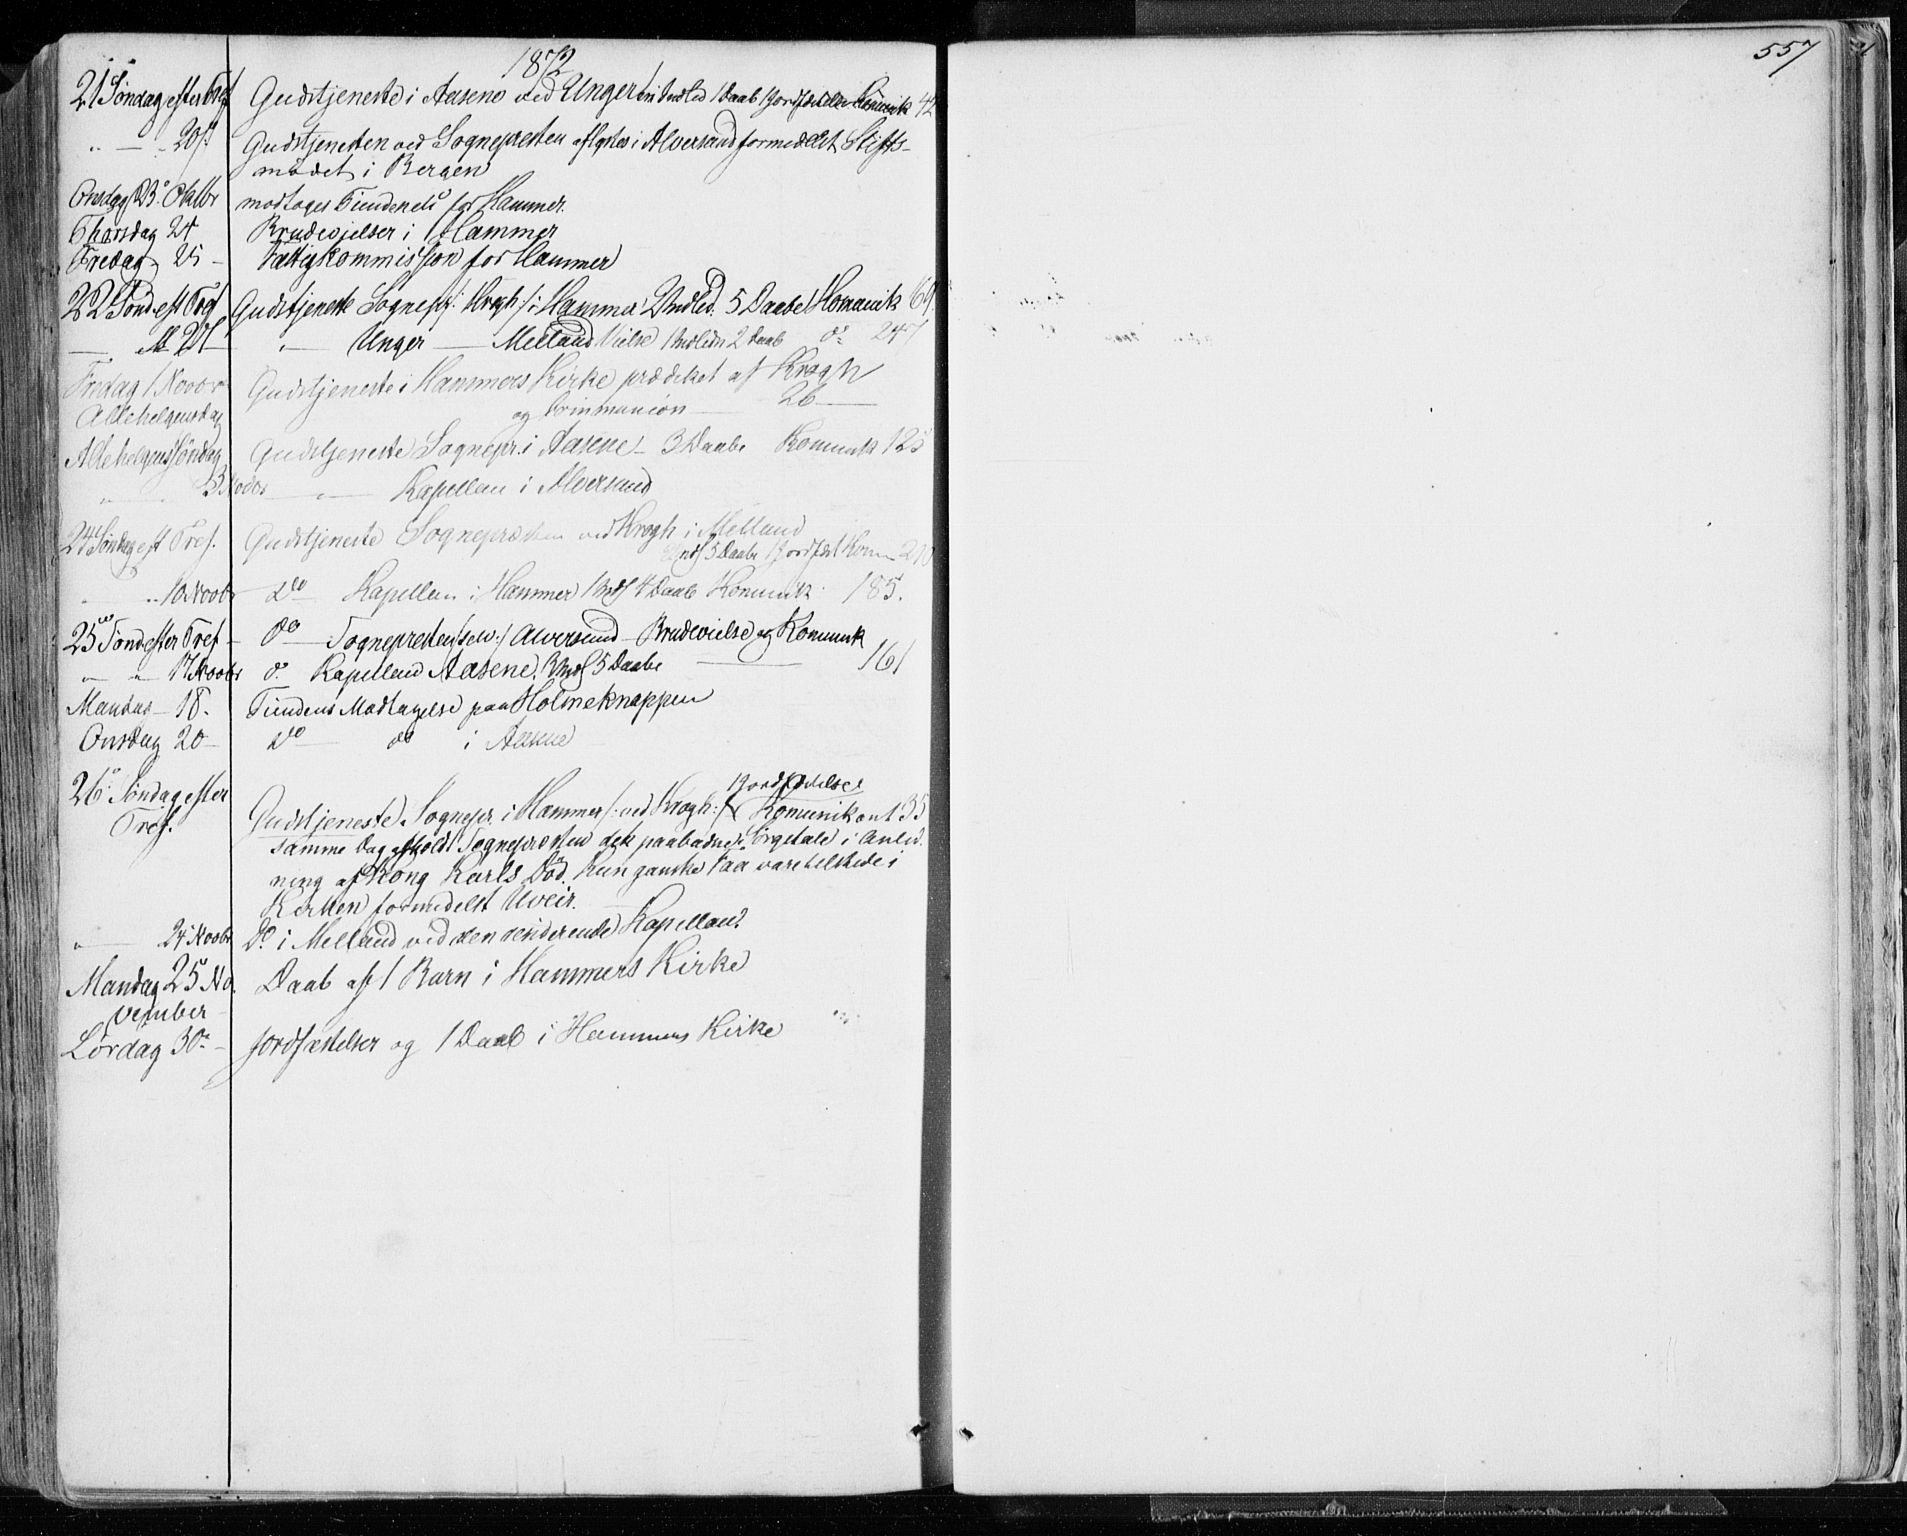 1872
557
21 Søndag efter Tref Gudstjeneste i Aasene ved Unger 1 Daab Komunik 42
" — " 20de Gudstjenesten ved Sognepresten aflystes i Alversund formedelst Stifts-
mødet i Bergen
Onsdag 23 Oktbr modtages Tiendenels for Hammer.
Thorsdag 24 Brudevielser i Hammer
Fredag 25 – Fattigkommission for Hammer
22 Sønd eft Tref Gudstjeneste Sognepr /: Krogh :/ i Hammer 5 Daabe Komunik 69
— " Unger — Melland Vielse 2 Daab do 247
Fredag 1 Novbr Gudstjeneste i Hammers Kirke prædiket af Krogh
Allehelgensdag og kommunion — 26 —
Allehelgenssøndag Gudstjeneste Sognepr. i Aasene – 3 Daabe Komunk 125
3 Novbr — " — Kapellan i Alversund
24 Søndag eft Tref. Gudstjeneste Sognepresten ved Krogh i Melland
5 Daabe 1 Jordfæst Kom
" " 10 Novbr do — Kapellan i Hammer 1 Indl 4 Daab Komunik 185.
25 Sønd efter Tref – do — Sognepresten /: selv :/ Alversund – Brudevielse og Komunik
" " 17 Novbr do Kapellan Aasene. 3 Indl 5 Daabe — 161
Mandag – 18. Tiendens Modtagelse paa Holmeknappen
Onsdag 20 – do — do i Aasene
26 Søndag efter 1 Jordfæstelse
Tref. Gudstjeneste Sognepr i Hammer /: ved Krogh :/ Komunikant 35
samme Dag afholdt Sognepresten dek paabudne Sørgetale i Anled
ning af Kong Karls Død. Kun ganske Faa vare tilstede i
Kirken formedelst Uveir.
" — 24 Novbr do i Melland ved den residerende Kapellan.
Mandag 25 No Daab af 1 Barn i Hammers Kirke
vember
Lørdag 30 – Jordfæstelser og 1 Daab i Hammers Kirke